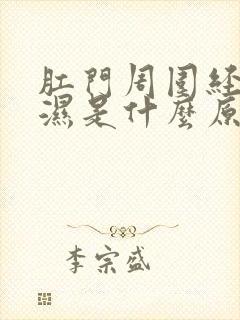 肛門周圍經
濕是什麼原
李宗盛